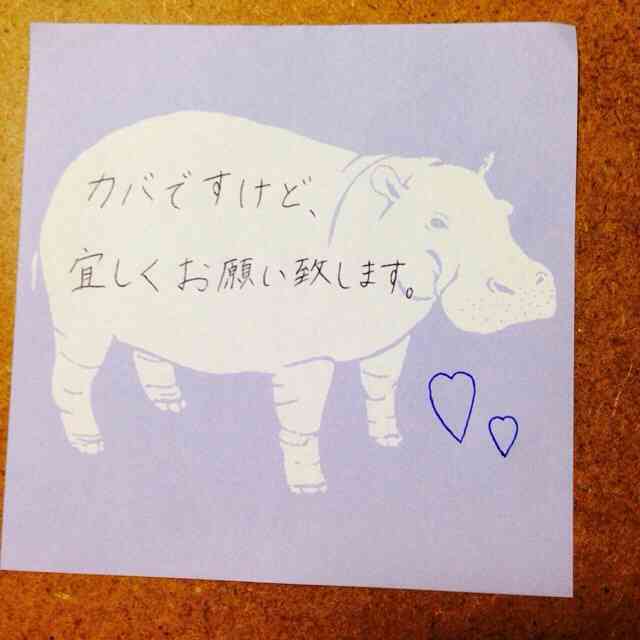 カバですけど、
宜しくお願い致します。